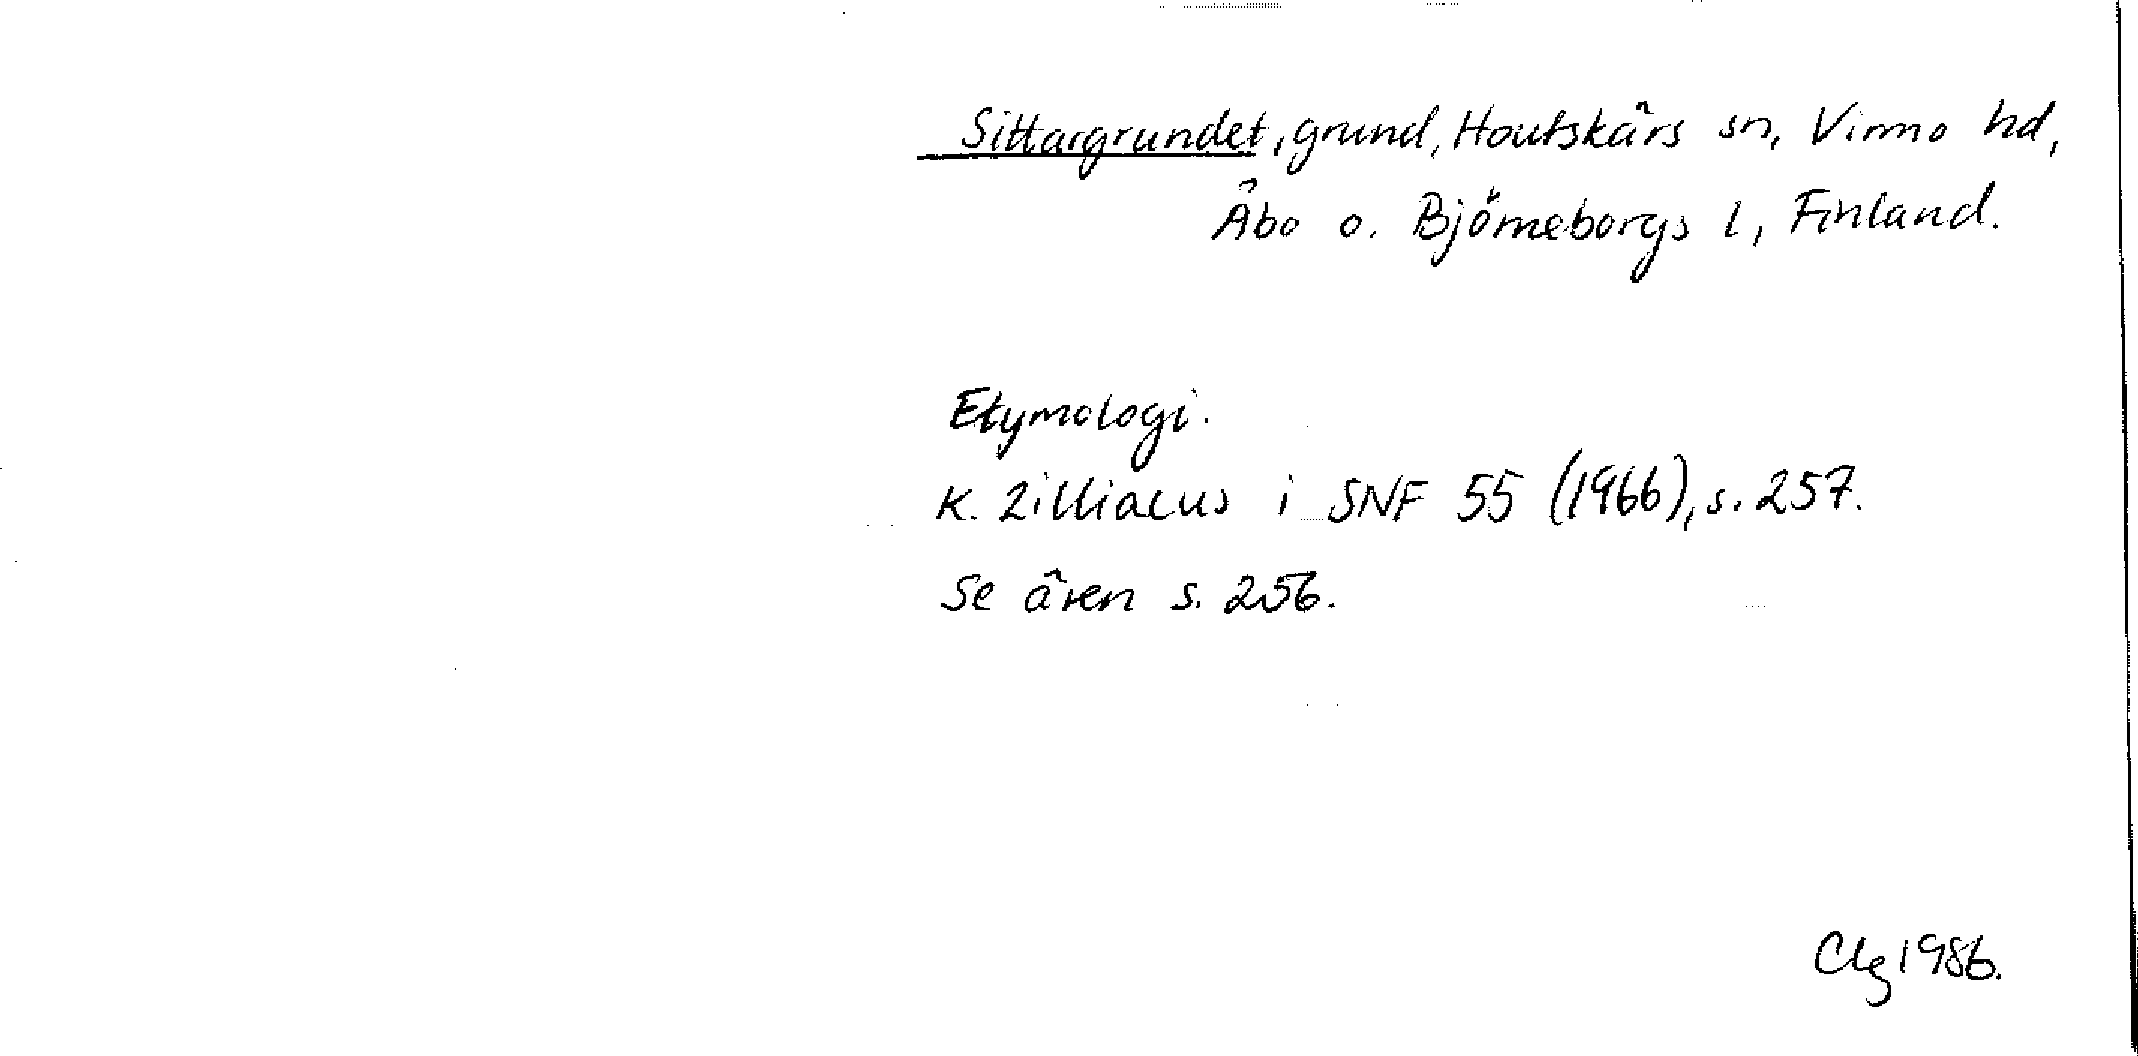 Sittargrundet, grund, Houtskärs sn, Virmo hd,
Åbo o. Björneborgs l, Finland.
Etymologi.
K. Zilliacus i SNF 55 (1966), s. 257.
Se även s. 256.
1986.